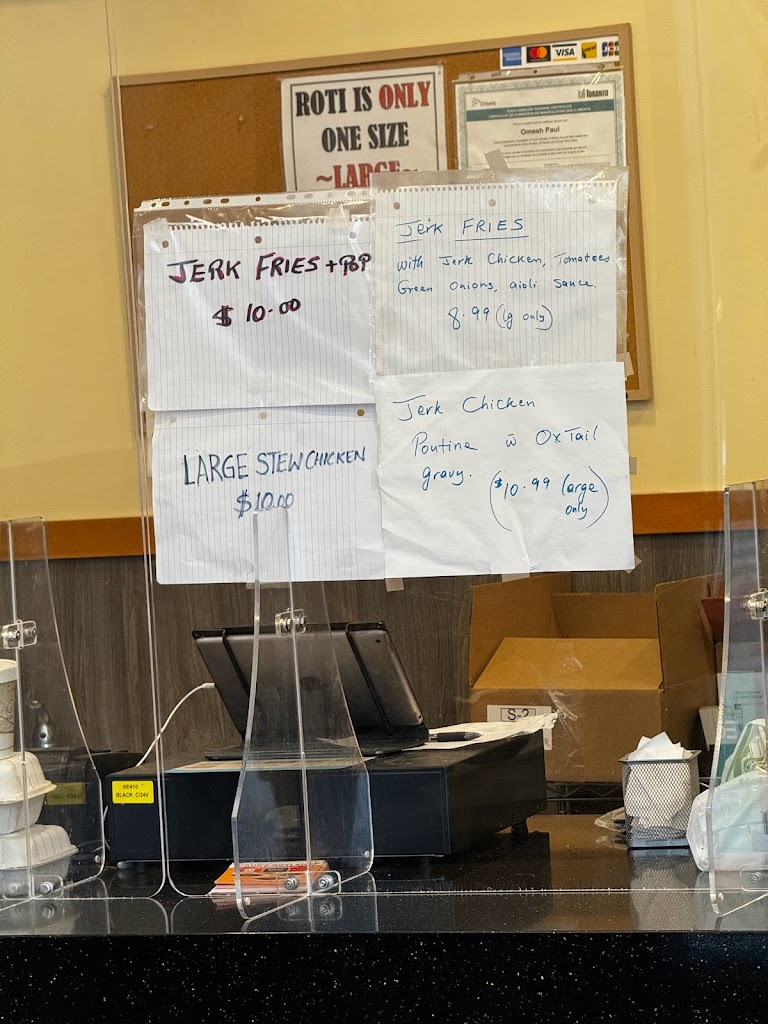 VISA
JCB
ROTI IS ONLY
ONE SIZE
~LARGE~
Ontario
TORONTO
FOOD HANDLER TRAINING CERTIFICATE
Omesh Paul
JERK FRIES + POP
$ 10.00
Jerk FRIES
with Jerk Chicken, Tomatoes
Green onions, aioli sauce.
8.99 (lg only)
LARGE STEW CHICKEN
$10.00
Jerk Chicken
Poutine w̄ OxTail
gravy.
($10.99 large
only)
S-2
BLACK C/24V